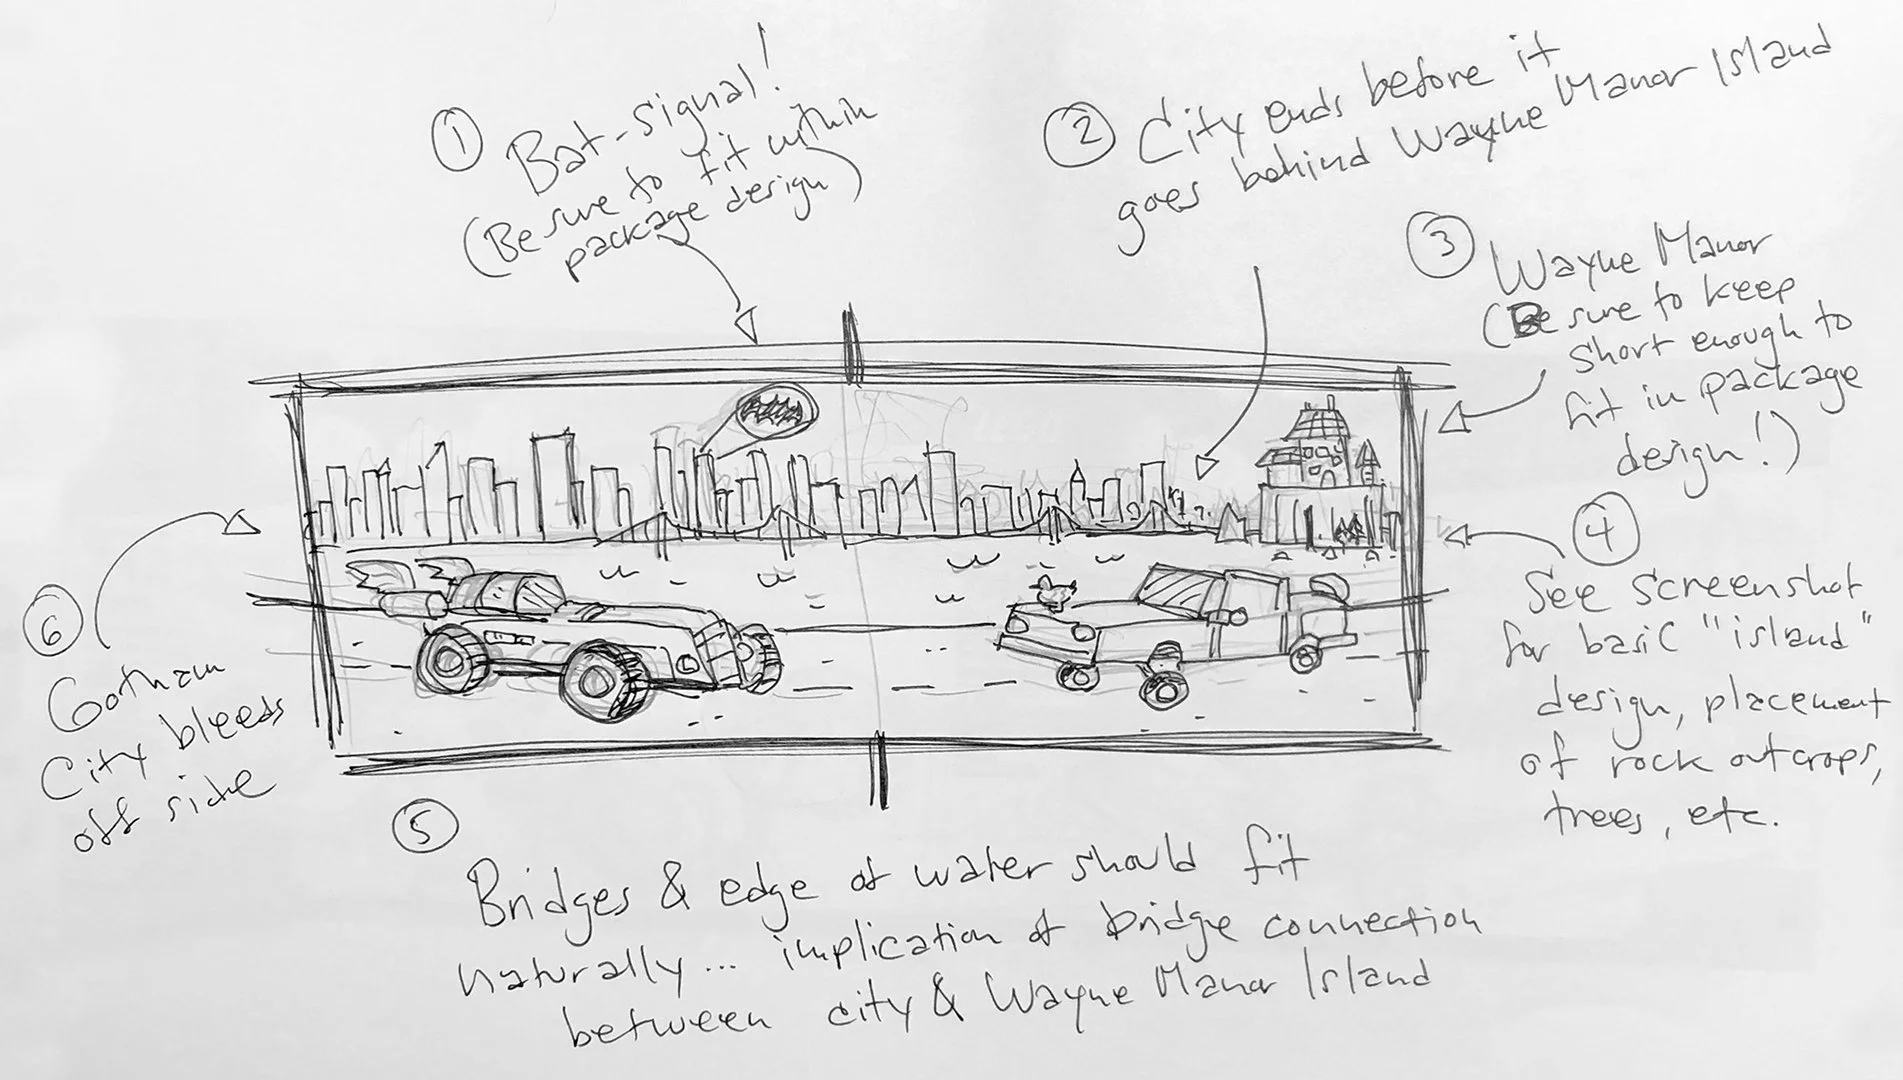 ① Bat-signal!
(Be sure to fit within
package design)
② City ends before it
goes behind Wayne Manor Island
③ Wayne Manor
(Be sure to keep
short enough to
fit in package
design!)
④
See screenshot
for basic "island"
design, placement
of rock outcrops,
trees, etc.
⑤
Bridges & edge of water should fit
naturally... implication of bridge connection
between city & Wayne Manor Island
⑥
Gotham
City bleeds
off side